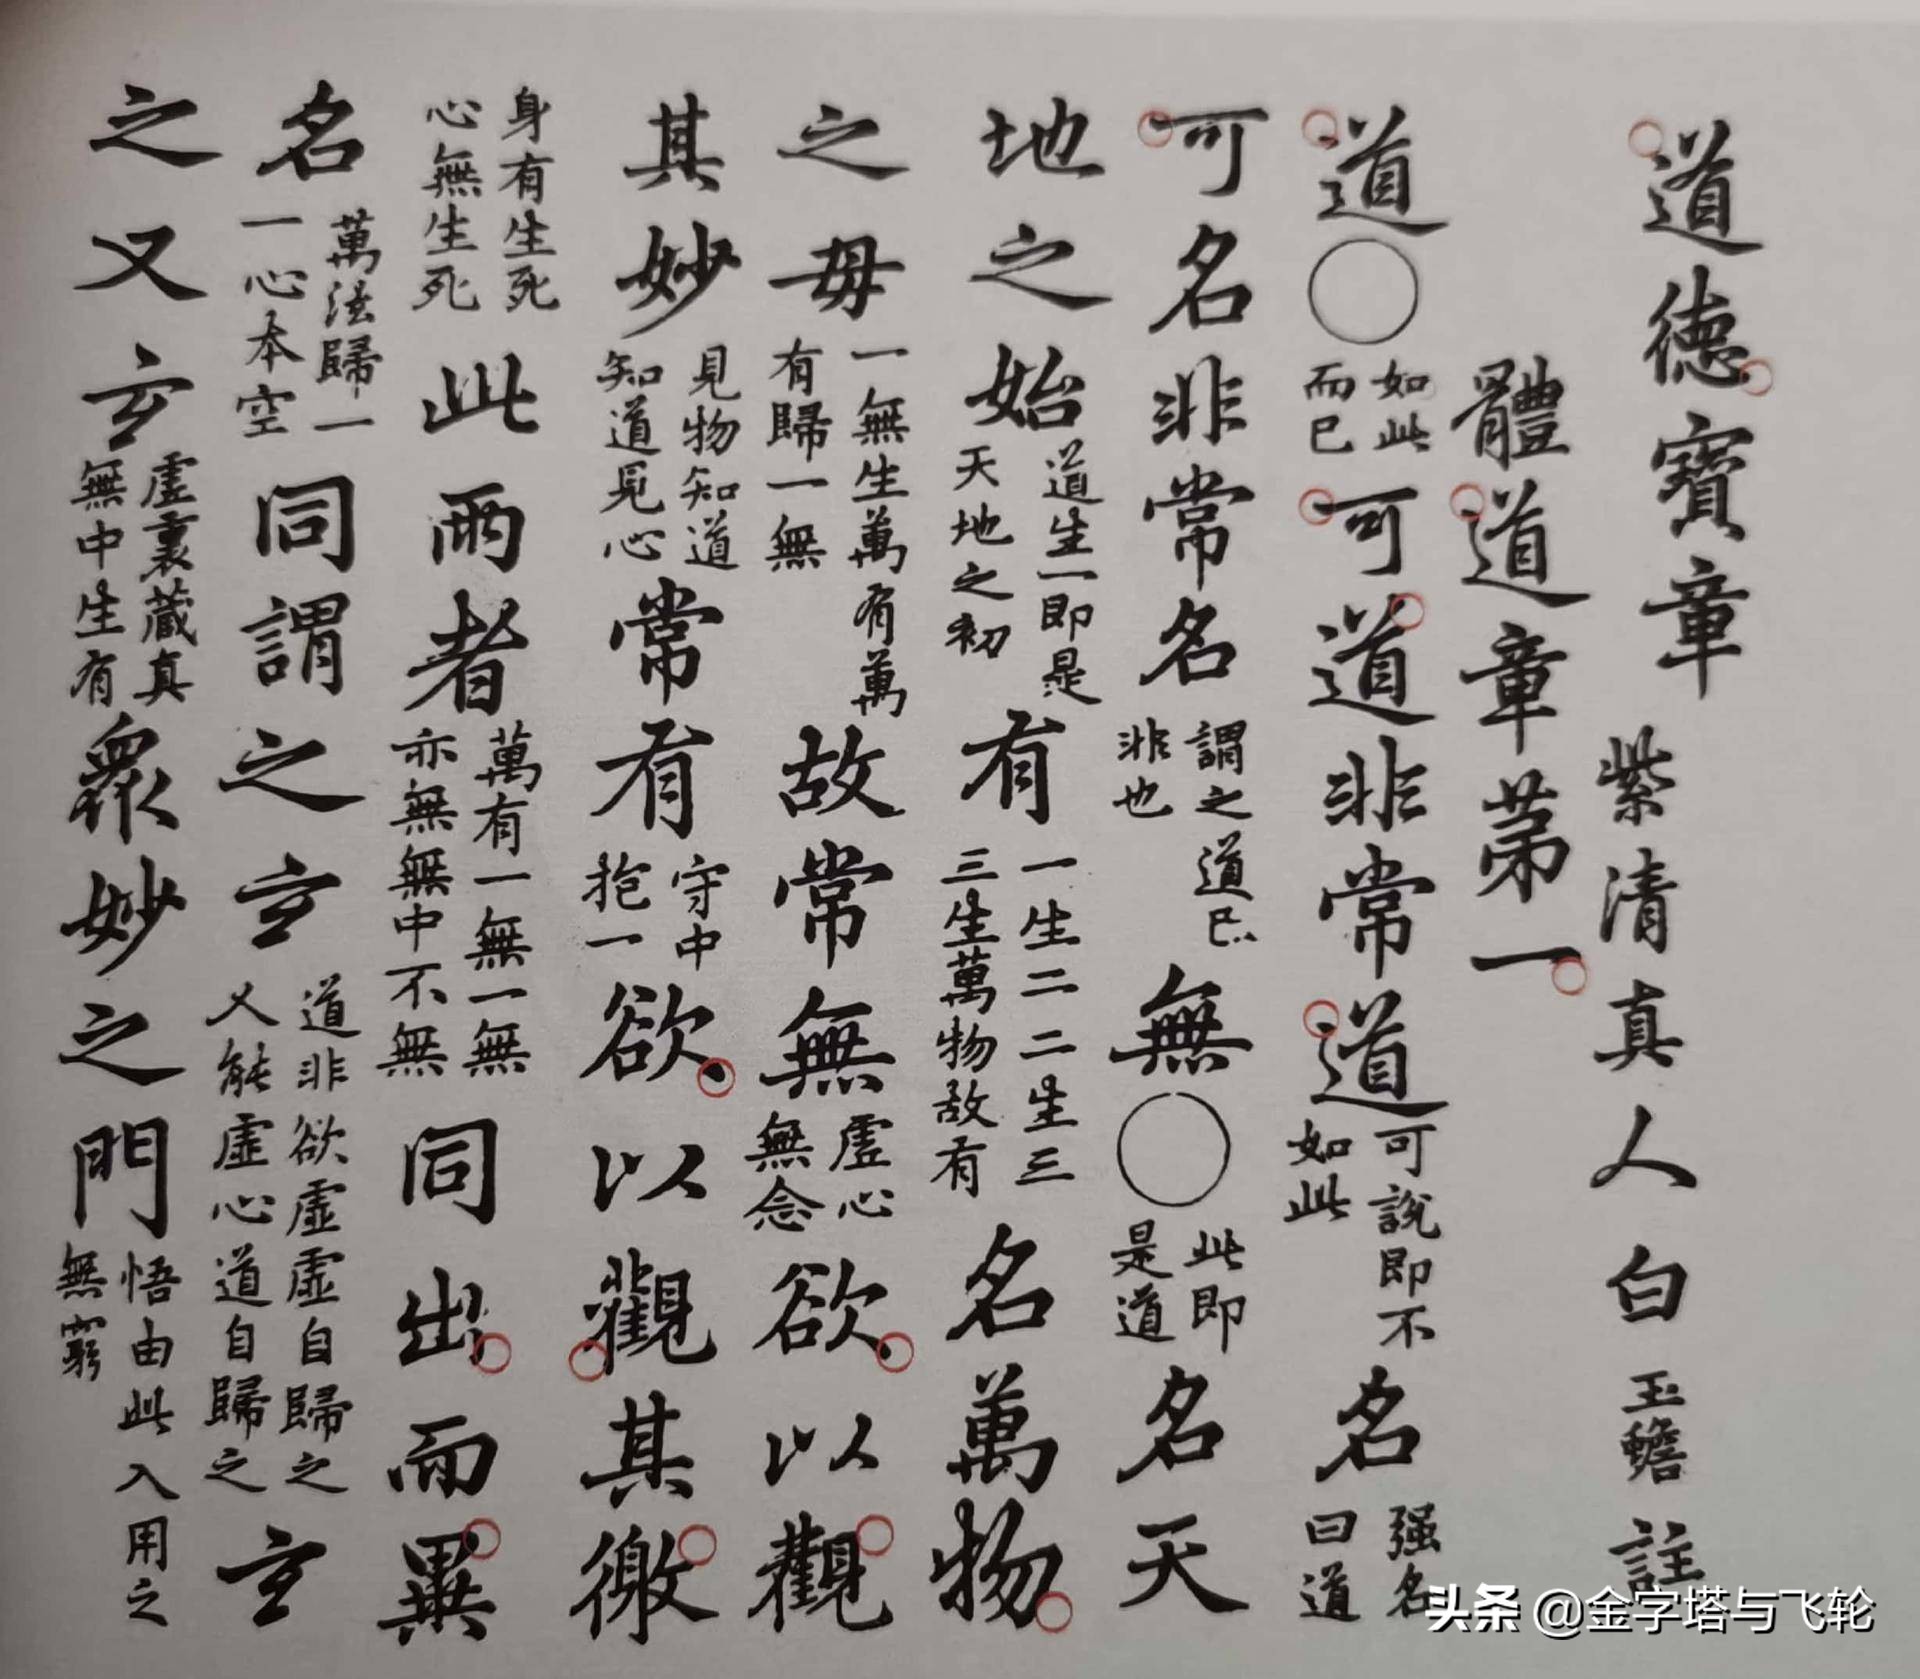 道德寶章 紫清真人白玉蟾註
體道章第一
道〇如此而已可道非常道可說即不如此名强名曰道
可名非常名謂之道已非也無〇此即是道名天
地之始道生一即是天地之初有一生二二生三三生萬物故有名萬物
之母一無生萬有萬有歸一無故常無虛心無念欲以觀
其妙見物知道知道見心常有守中抱一欲以觀其徼
身有生死心無生死此兩者萬有一無一無亦無無中不無同出而異
名萬法歸一一心本空同謂之玄道非欲虛虛自歸之人能虛心道自歸之玄
之又玄虛裏藏真無中生有衆妙之門悟由此入用之無窮
头条 @金字塔与飞轮